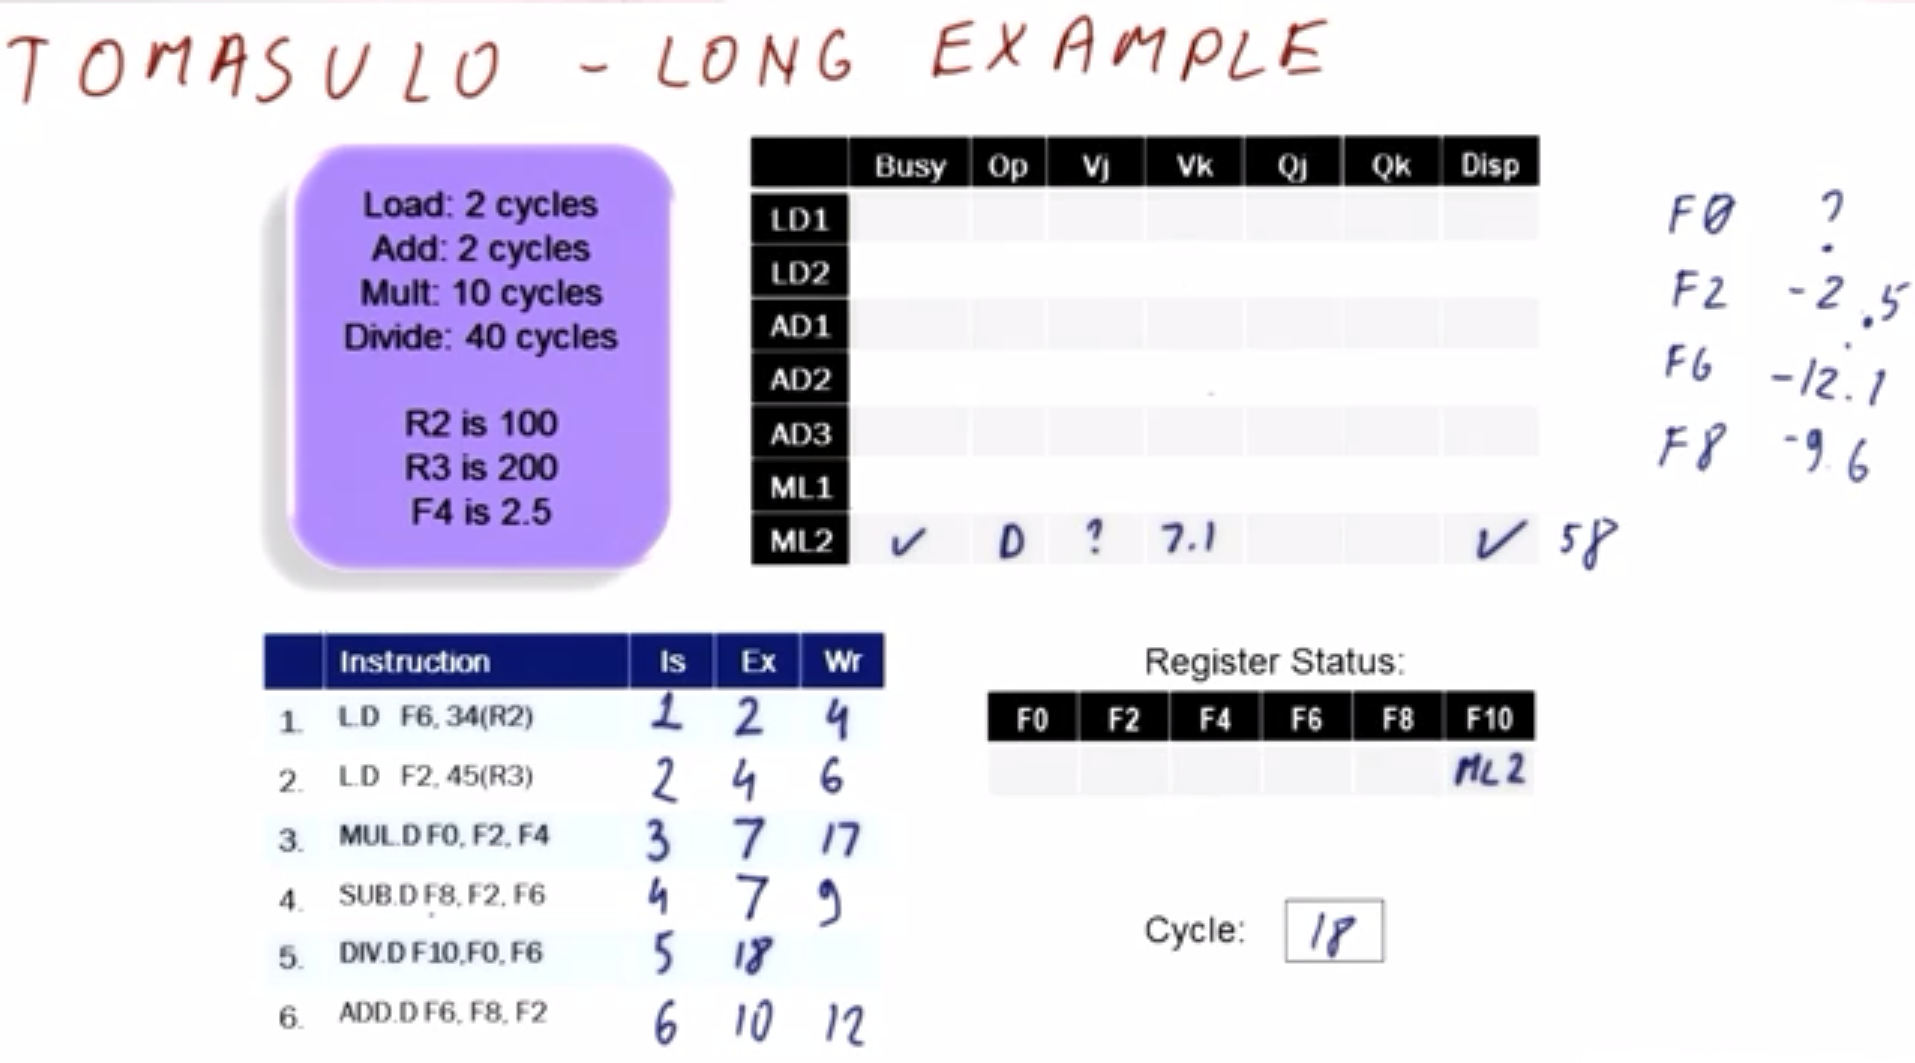 TOMASULO - LONG EXAMPLE
Load: 2 cycles
Add: 2 cycles
Mult: 10 cycles
Divide: 40 cycles
R2 is 100
R3 is 200
F4 is 2.5
Busy Op Vj Vk Qj Qk Disp
LD1
LD2
AD1
AD2
AD3
ML1
ML2 ✓ D ? 7.1 ✓ 58
F0 ?
F2 -2.5
F6 -12.1
F8 -9.6
Instruction Is Ex Wr
1. L.D F6, 34(R2) 1 2 4
2. L.D F2, 45(R3) 2 4 6
3. MUL.D F0, F2, F4 3 7 17
4. SUB.D F8, F2, F6 4 7 9
5. DIV.D F10,F0, F6 5 18
6. ADD.D F6, F8, F2 6 10 12
Register Status:
F0 F2 F4 F6 F8 F10
ML2
Cycle: 18